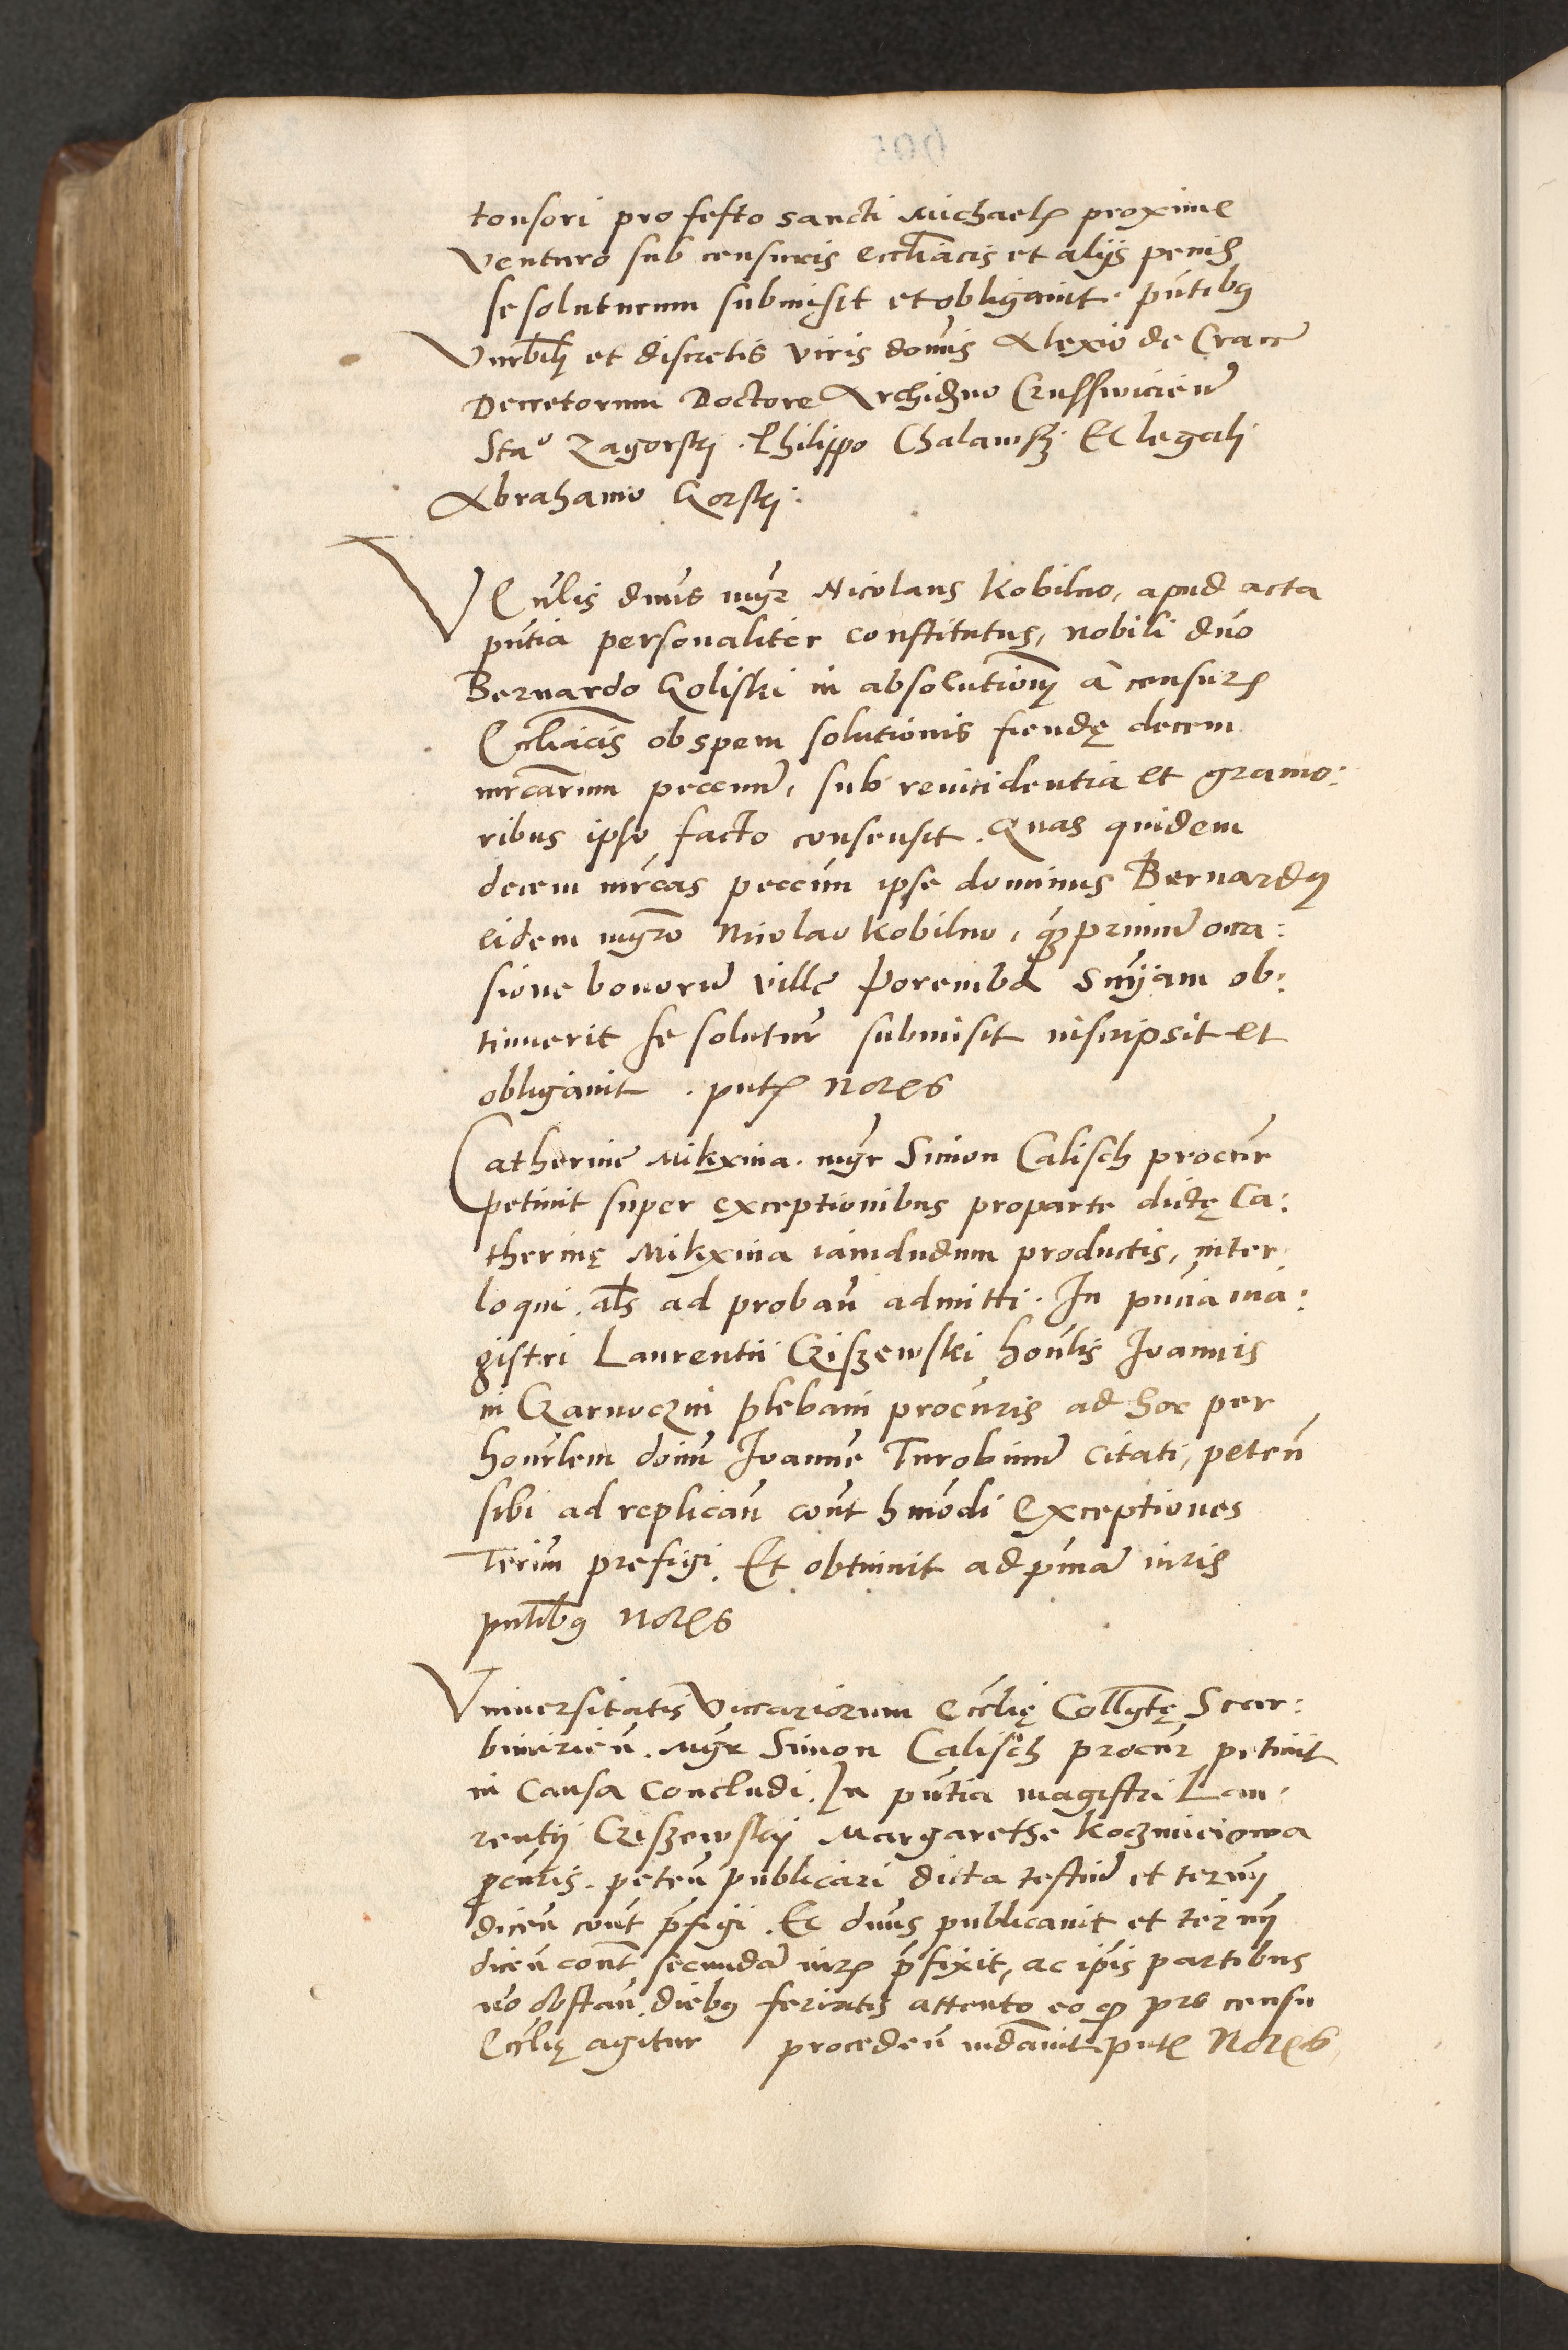 tonsori pro festo sancti Michaelis proxime
venturo sub censuris eccliacis et alijs penis
se soluturum submisit et obligauit. pntibus
Vnrblibus et discretis viris domis Alexio de Crace
Decretorum Doctore Archidno Crusswicien
Stao Zagorskj. Philippo Chalawskj Et legalj
Abrahamo Gorskj:
VEnlis dnus mgr Nicolaus Kobilno, apud acta
pntia personaliter constitutus, nobili dno
Bernardo Goliski in absolutionem a censuris
Eccliacis ob spem solutionis fiendę decem
mrcarum peccunie, sub reincidentia et grauio:
ribus ipso facto consensit. Quas quidem
decem mrcas peccun ipse dominus Bernardus
eidem mgro Nicolao Kobilno, quamprimum occa:
sione bonorum villę Poremba snijam ob:
tinuerit se solutur submisit inscripsit et
obligauit. pntibus Nores
Catherine Mikxina. mgr Simon Calisch procur
petiuit super exceptionibus pro parte dictę Ca:
therinę Mikxina iamdudum productis, inter:
loqui. als ad proban admitti. In pntia ma:
gistri Laurentii Cziszewski honlis Joannis
in Czarnoczin plebani procuris ad hoc per
honrlem domn Joanne Turobinum citati, peten
sibi ad replican cont hmodi exceptiones
Termn prefigi. Et obtinuit ad pmam iuris
pntibus Nores
Vniversitatis Viccariorum Ecclię Collgtę Scar:
bimirien. Mgr Simon Calisch procur petiuit
in causa concludi. In pntia magistri Lau:
rentij Cziszewskj Margarethe Koczmierzowa
procuris. peten publicari dicta testium et termn
dicen cont prefigi. Et dnus publicauit et termn
dicen cont secundam iuris prefixit, ac ipsis partibus
no obstan. diebus feriatis attento eo quod pro censu
Ecclię agitur proceden mdauit. pntibus Nores